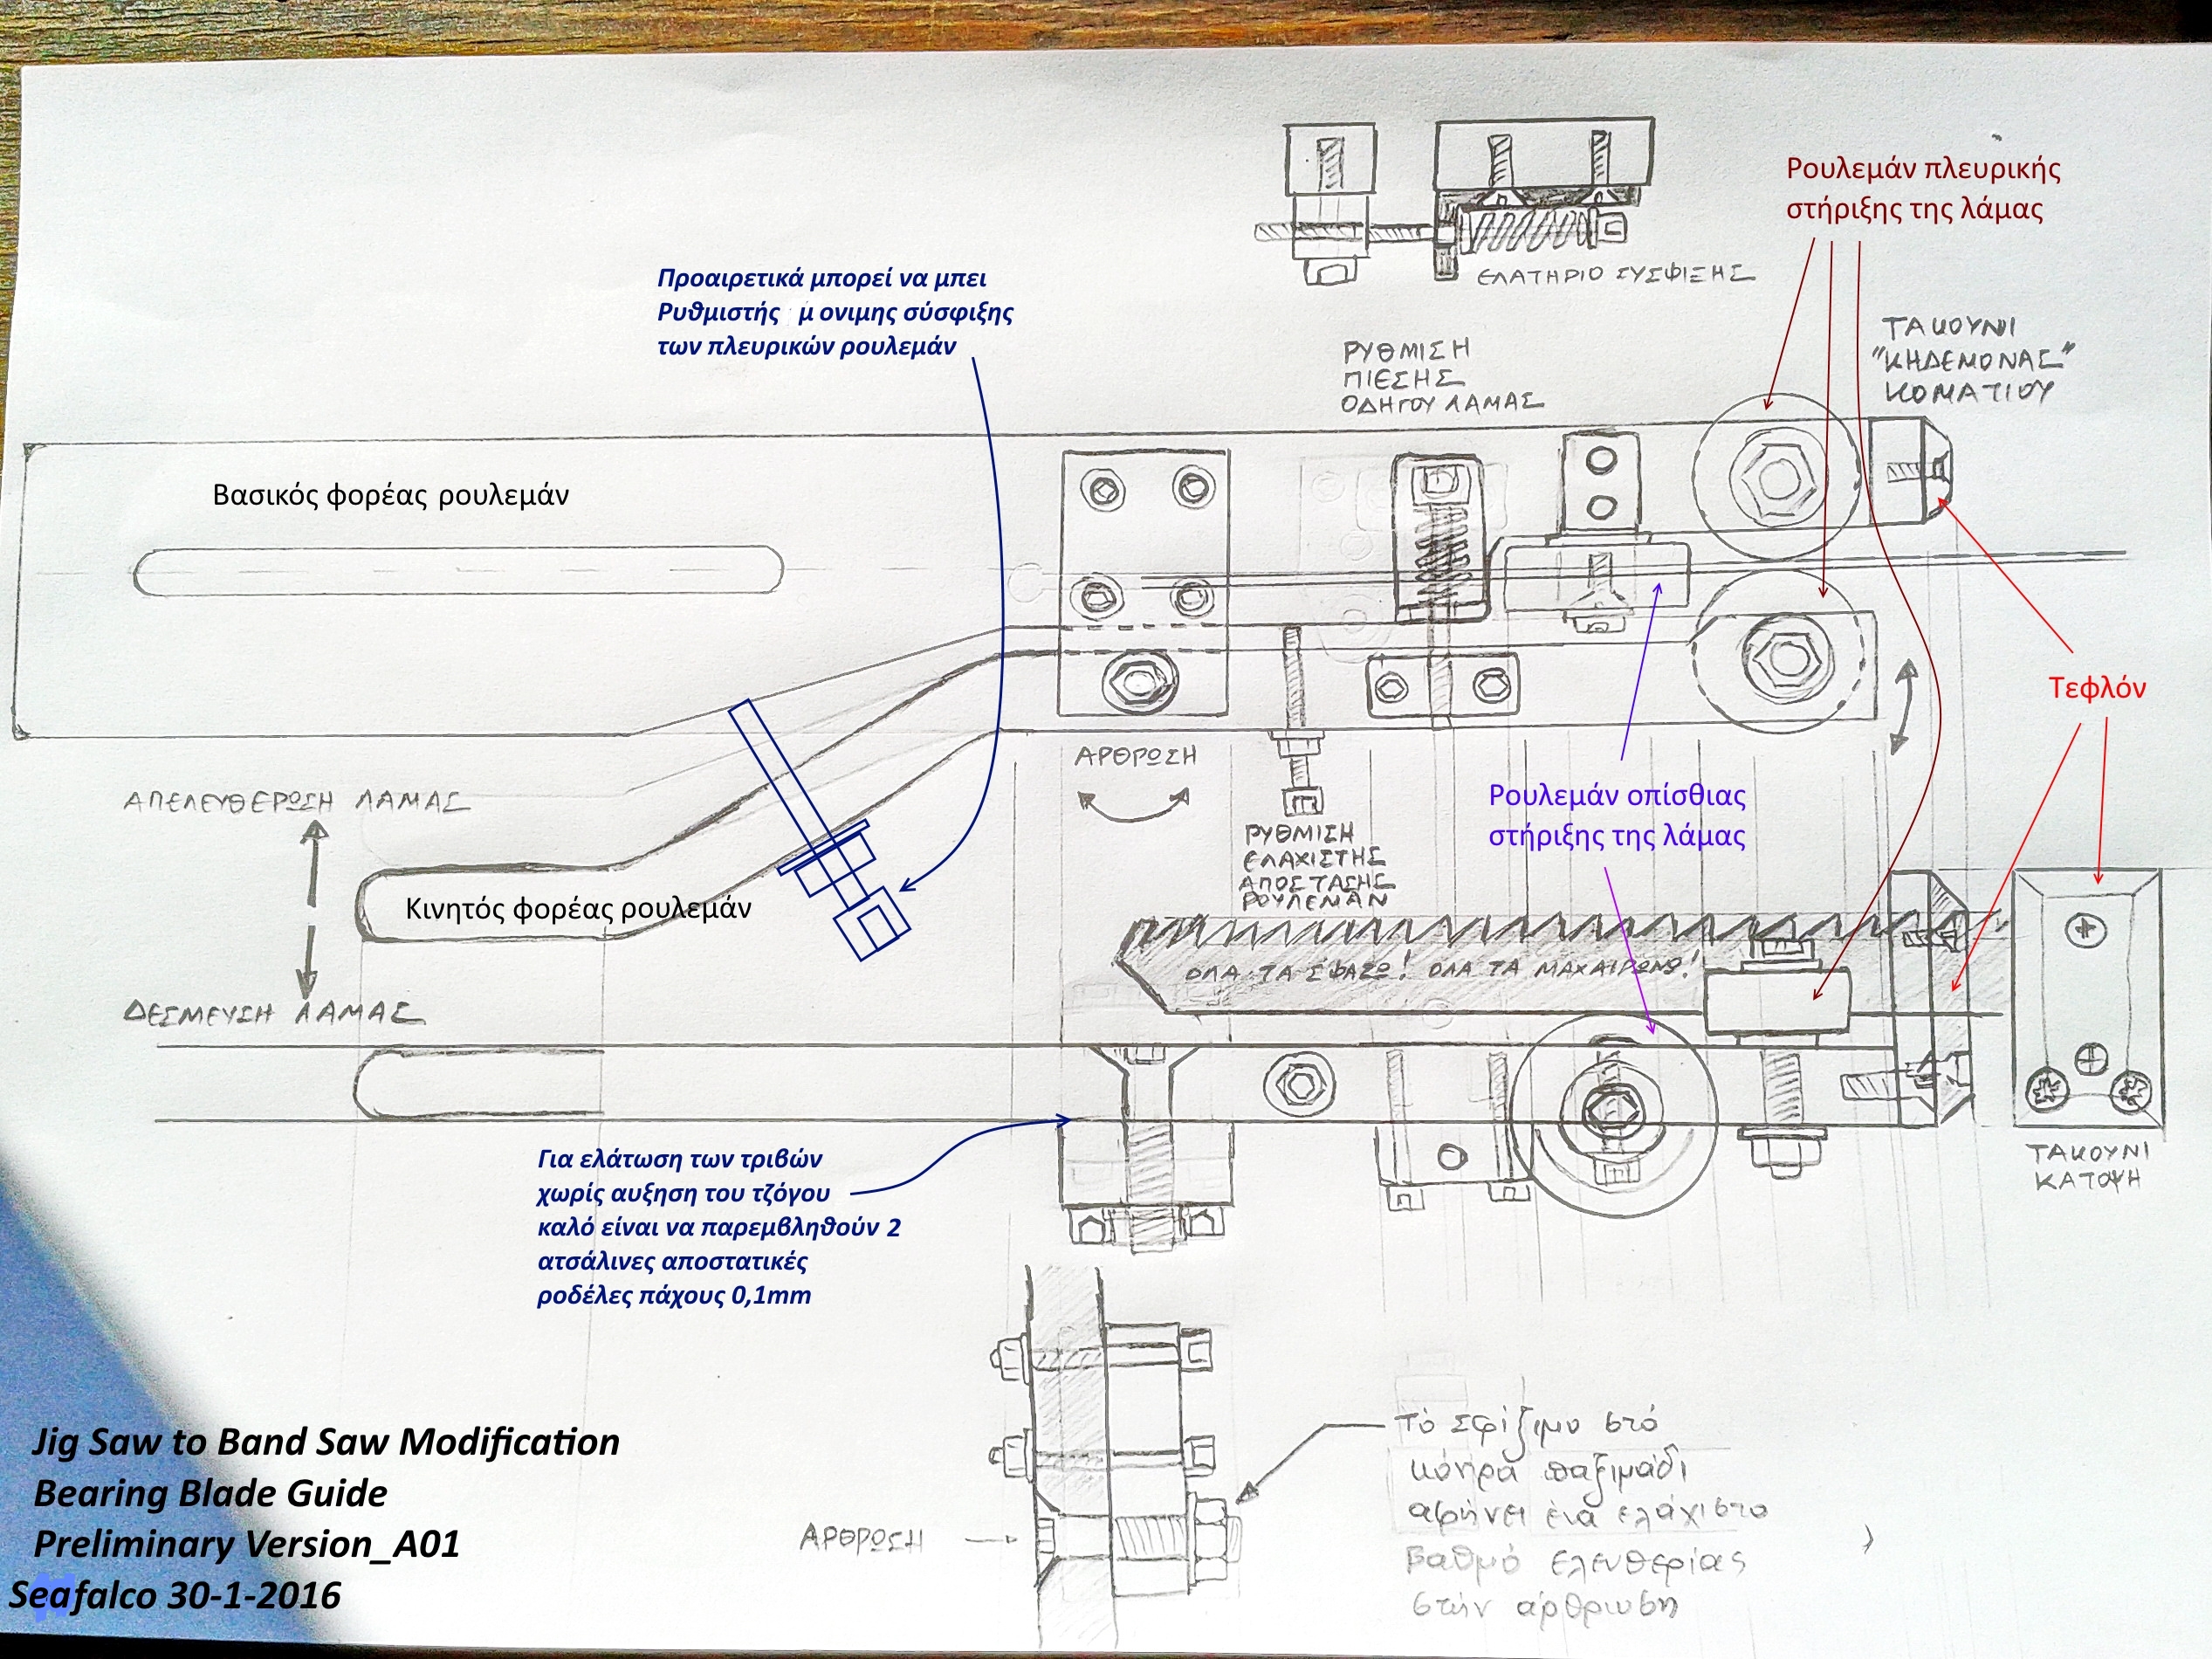 ΕΛΑΤΗΡΙΟ ΣΥΣΦΙΞΗΣ
Ρουλεμάν πλευρικής
στήριξης της λάμας
Προαιρετικά μπορεί να μπει
Ρυθμιστής μ ονιμης σύσφιξης
των πλευρικών ρουλεμάν
ΡΥΘΜΙΣΗ
ΠΙΕΣΗΣ
ΟΔΗΓΟΥ ΛΑΜΑΣ
ΤΑΚΟΥΝΙ
"ΚΗΔΕΜΟΝΑΣ"
ΚΟΜΑΤΙΟΥ
Βασικός φορέας ρουλεμάν
Τεφλόν
ΑΡΘΡΩΣΗ
ΑΠΕΛΕΥΘΕΡΩΣΗ ΛΑΜΑΣ
Ρουλεμάν οπίσθιας
στήριξης της λάμας
ΡΥΘΜΙΣΗ
ΕΛΑΧΙΣΤΗΣ
ΑΠΟΣΤΑΣΗΣ
ΡΟΥΛΕΜΑΝ
Κινητός φορέας ρουλεμάν
ΟΛΑ ΤΑ ΣΦΑΖΩ! ΟΛΑ ΤΑ ΜΑΧΑΙΡΩΝΩ!
ΔΕΣΜΕΥΣΗ ΛΑΜΑΣ
Για ελάτωση των τριβών
χωρίς αυξηση του τζόγου
καλό είναι να παρεμβληθούν 2
ατσάλινες αποστατικές
ροδέλες πάχους 0,1mm
ΤΑΚΟΥΝΙ
ΚΑΤΟΨΗ
Τό σφίξιμο στό
κόντρα παξιμάδι
αφήνει ένα ελάχιστο
βαθμό ελευθερίας
στήν άρθρωση
ΑΡΘΡΩΣΗ
Jig Saw to Band Saw Modification
Bearing Blade Guide
Preliminary Version_A01
Seafalco 30-1-2016